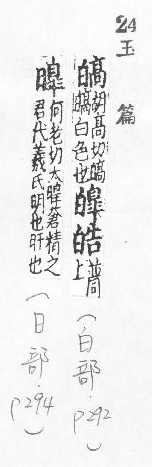 24
玉篇
皜胡高切皜皜白色也皞皓並同上（白部．P292）
暤何老切大暤蒼精之君伏羲氏明也旰也（日部．P294）